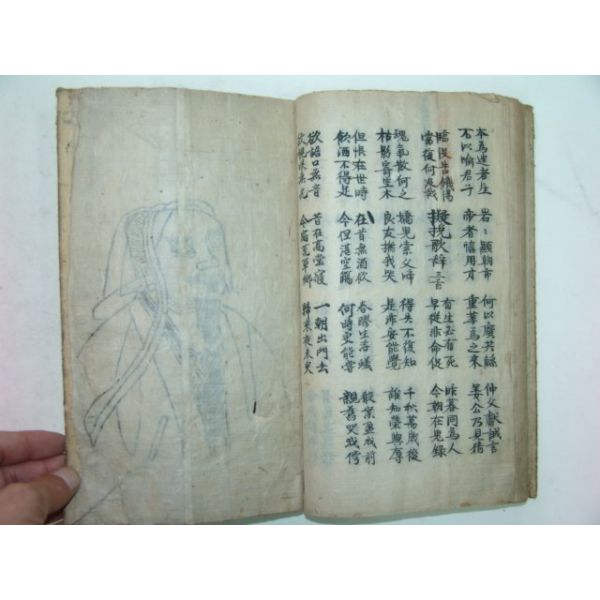 本為迷者生 岩〻顯朝市 何以廢共鯀 仲父獻誠言
不以喻君子 帝者慎用才 重華為之來 姜公乃見猜
臨沒告饑渴 擬挽歌辭三首 有生必有死 昨暮同為人
當復何及哉 早終非命促 今朝在鬼錄
魂氣散何之 嬌兒索父啼 得失不復知 千秋萬歲後
枯形寄空木 良友撫我哭 是非安能覺 誰知榮與辱
但恨在世時 在昔無酒飲 春醪生浮蟻 殽案盈我前
飲酒不得足 今但湛空觴 何時更能嘗 親舊哭我傍
欲語口無音 昔在高堂寢 一朝出門去
欲視眼無光 今宿荒草鄉 歸來夜未央